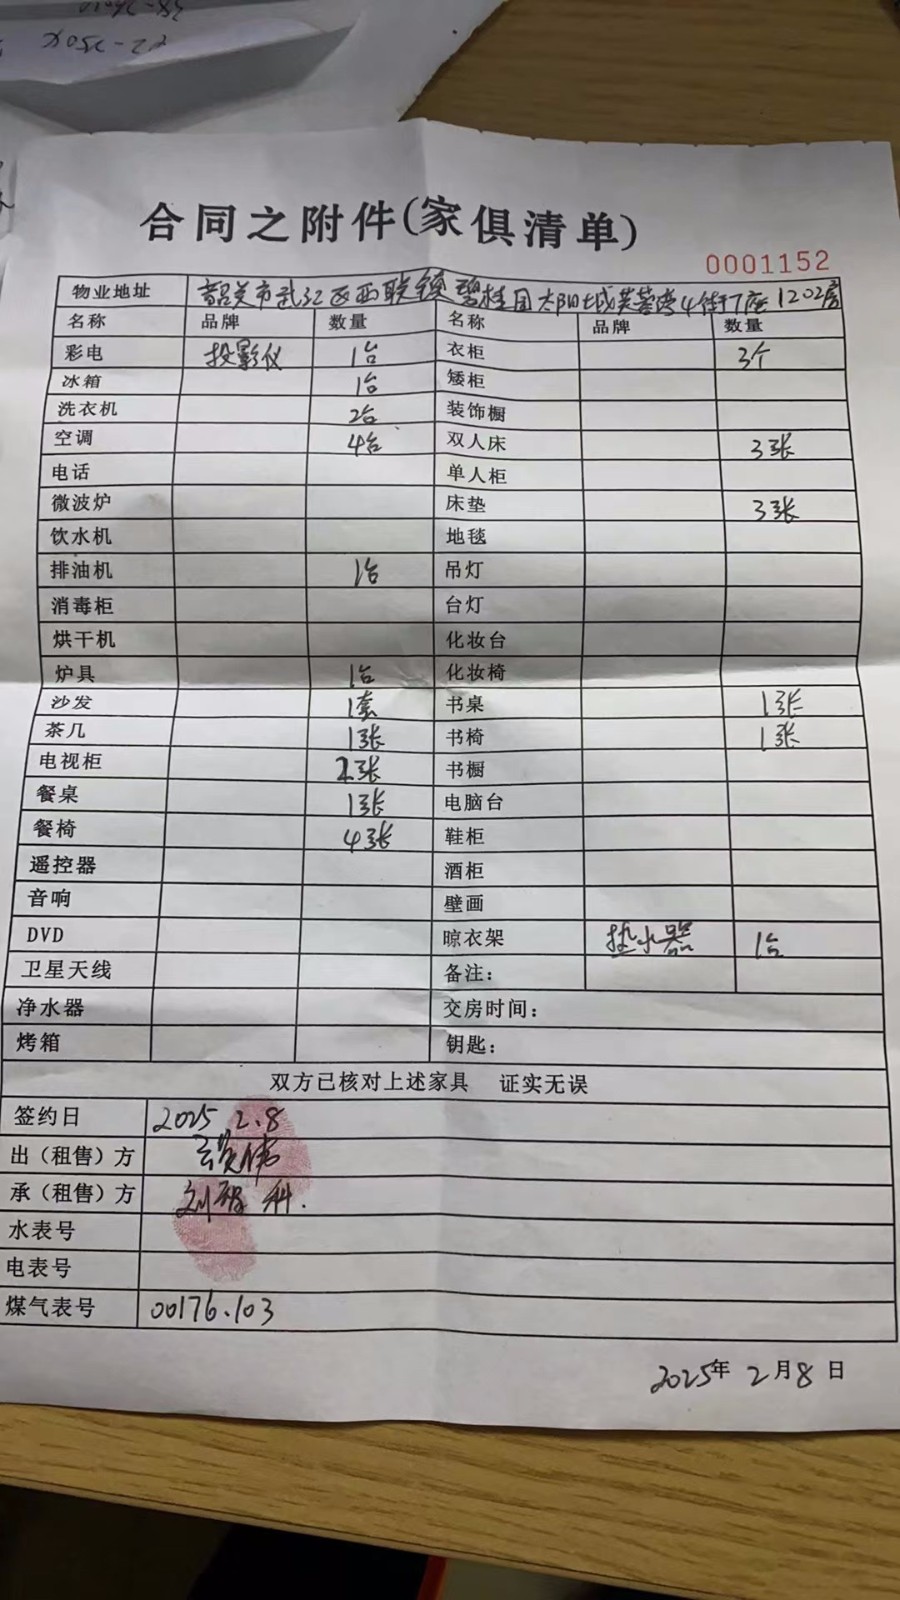 合同之附件(家俱清单)
0001152
物业地址 韶关市武江区西联镇碧桂园太阳城芙蓉湾4街7座1202房
名称 品牌 数量 名称 品牌 数量
彩电 投影仪 1台 衣柜 3个
冰箱 1台 矮柜
洗衣机 2台 装饰橱
空调 4台 双人床 3张
电话 单人柜
微波炉 床垫 3张
饮水机 地毯
排油机 1台 吊灯
消毒柜 台灯
烘干机 化妆台
炉具 1台 化妆椅
沙发 1套 书桌 1张
茶几 1张 书椅 1张
电视柜 张 书橱
餐桌 1张 电脑台
餐椅 4张 鞋柜
遥控器 酒柜
音响 壁画
DVD 晾衣架 热水器 1台
卫星天线 备注:
净水器 交房时间:
烤箱 钥匙:
双方已核对上述家具 证实无误
签约日 2025 2.8
出（租售）方
承（租售）方 刘
水表号
电表号
煤气表号 00176.103
2025年 2月8日